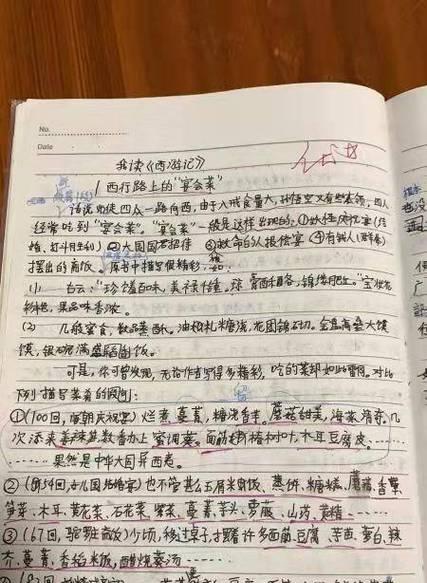 No.
Date
我读《西游记》
1 西行路上的"宴会菜"
话说师徒四人一路向西,由于八戒食量大,孙悟空又有些本领,四人
经常吃到"宴会菜"。"宴会菜"一般是这样出现的:①妖怪庆祝宴(结
婚,打斗胜利)②大国国君招待 ③救命的人报恩宴 ④有钱人
摆出的斋饭。原书中描写很精彩,
(1) 台云:"珍馐百味,美禄千钟。琼
彩艳,果品味香浓。
(2) 几般蜜食,数品蒸酥。油札糖浇,花团锦砌。金盘高垒大馒
馍,银碗满盛稻饭。
可是,你可曾发现,无论作者写得多精彩,吃的菜却如此雷同。对比
下列描写菜肴的图例:
①(100回,朝庆祝宴)烂煮蔓菁,糖浇香芋。蘑菇甜美,海菜清奇。几
次添来姜辣笋,数番办上蜜调葵。面筋椿树叶,木耳豆腐皮……
……果然是中华大国异西夷。
②(第54回,女儿国结婚宴)也不管甚么玉屑米饭、蒸饼、糖糕、蘑菇、香蕈、
笋芽、木耳、黄花菜、石花菜、紫菜、蔓菁、芋头、萝菔、山药、黄精……
③(67回,驼罗庄救)少顷,移过桌子,摆着许多面筋、豆腐、芋苗、萝白、辣
芥、蔓菁、香稻米饭,醋烧葵汤……